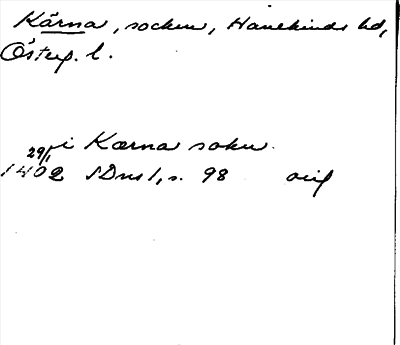 Kärna, socken, Hanekinds hd,
Österg. l.
i Kærna sokn
29/1
1402 SDns 1, s. 98 orig